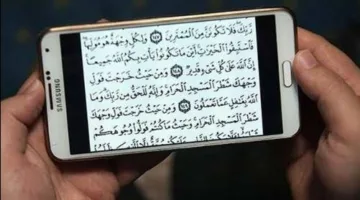 رَبِّكَ فَلَا تَكُونَنَّ مِنَ ٱلْمُمْتَرِينَ ١٤٧ وَلِكُلٍّ وِجْهَةٌ هُوَ مُوَلِّيهَا
فَٱسْتَبِقُوا۟ ٱلْخَيْرَٰتِ أَيْنَ مَا تَكُونُوا۟ يَأْتِ بِكُمُ ٱللَّهُ جَمِيعًا
إِنَّ ٱللَّهَ عَلَىٰ كُلِّ شَىْءٍ قَدِيرٌ ١٤٨ وَمِنْ حَيْثُ خَرَجْتَ فَوَلِّ
وَجْهَكَ شَطْرَ ٱلْمَسْجِدِ ٱلْحَرَامِ وَإِنَّهُ لَلْحَقُّ مِن رَّبِّكَ وَمَا
ٱللَّهُ بِغَٰفِلٍ عَمَّا تَعْمَلُونَ ١٤٩ وَمِنْ حَيْثُ خَرَجْتَ فَوَلِّ وَجْهَكَ
شَطْرَ ٱلْمَسْجِدِ ٱلْحَرَامِ وَحَيْثُ مَا كُنتُمْ فَوَلُّوا۟ وُجُوهَكُمْ
SAMSUNG